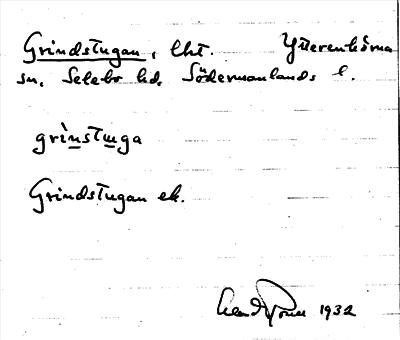 Grindstugan, lht. Ytterenhörna
sn, Selebo hd, Södermanlands l.
grìnstuga
Grindstugan ek.
1932